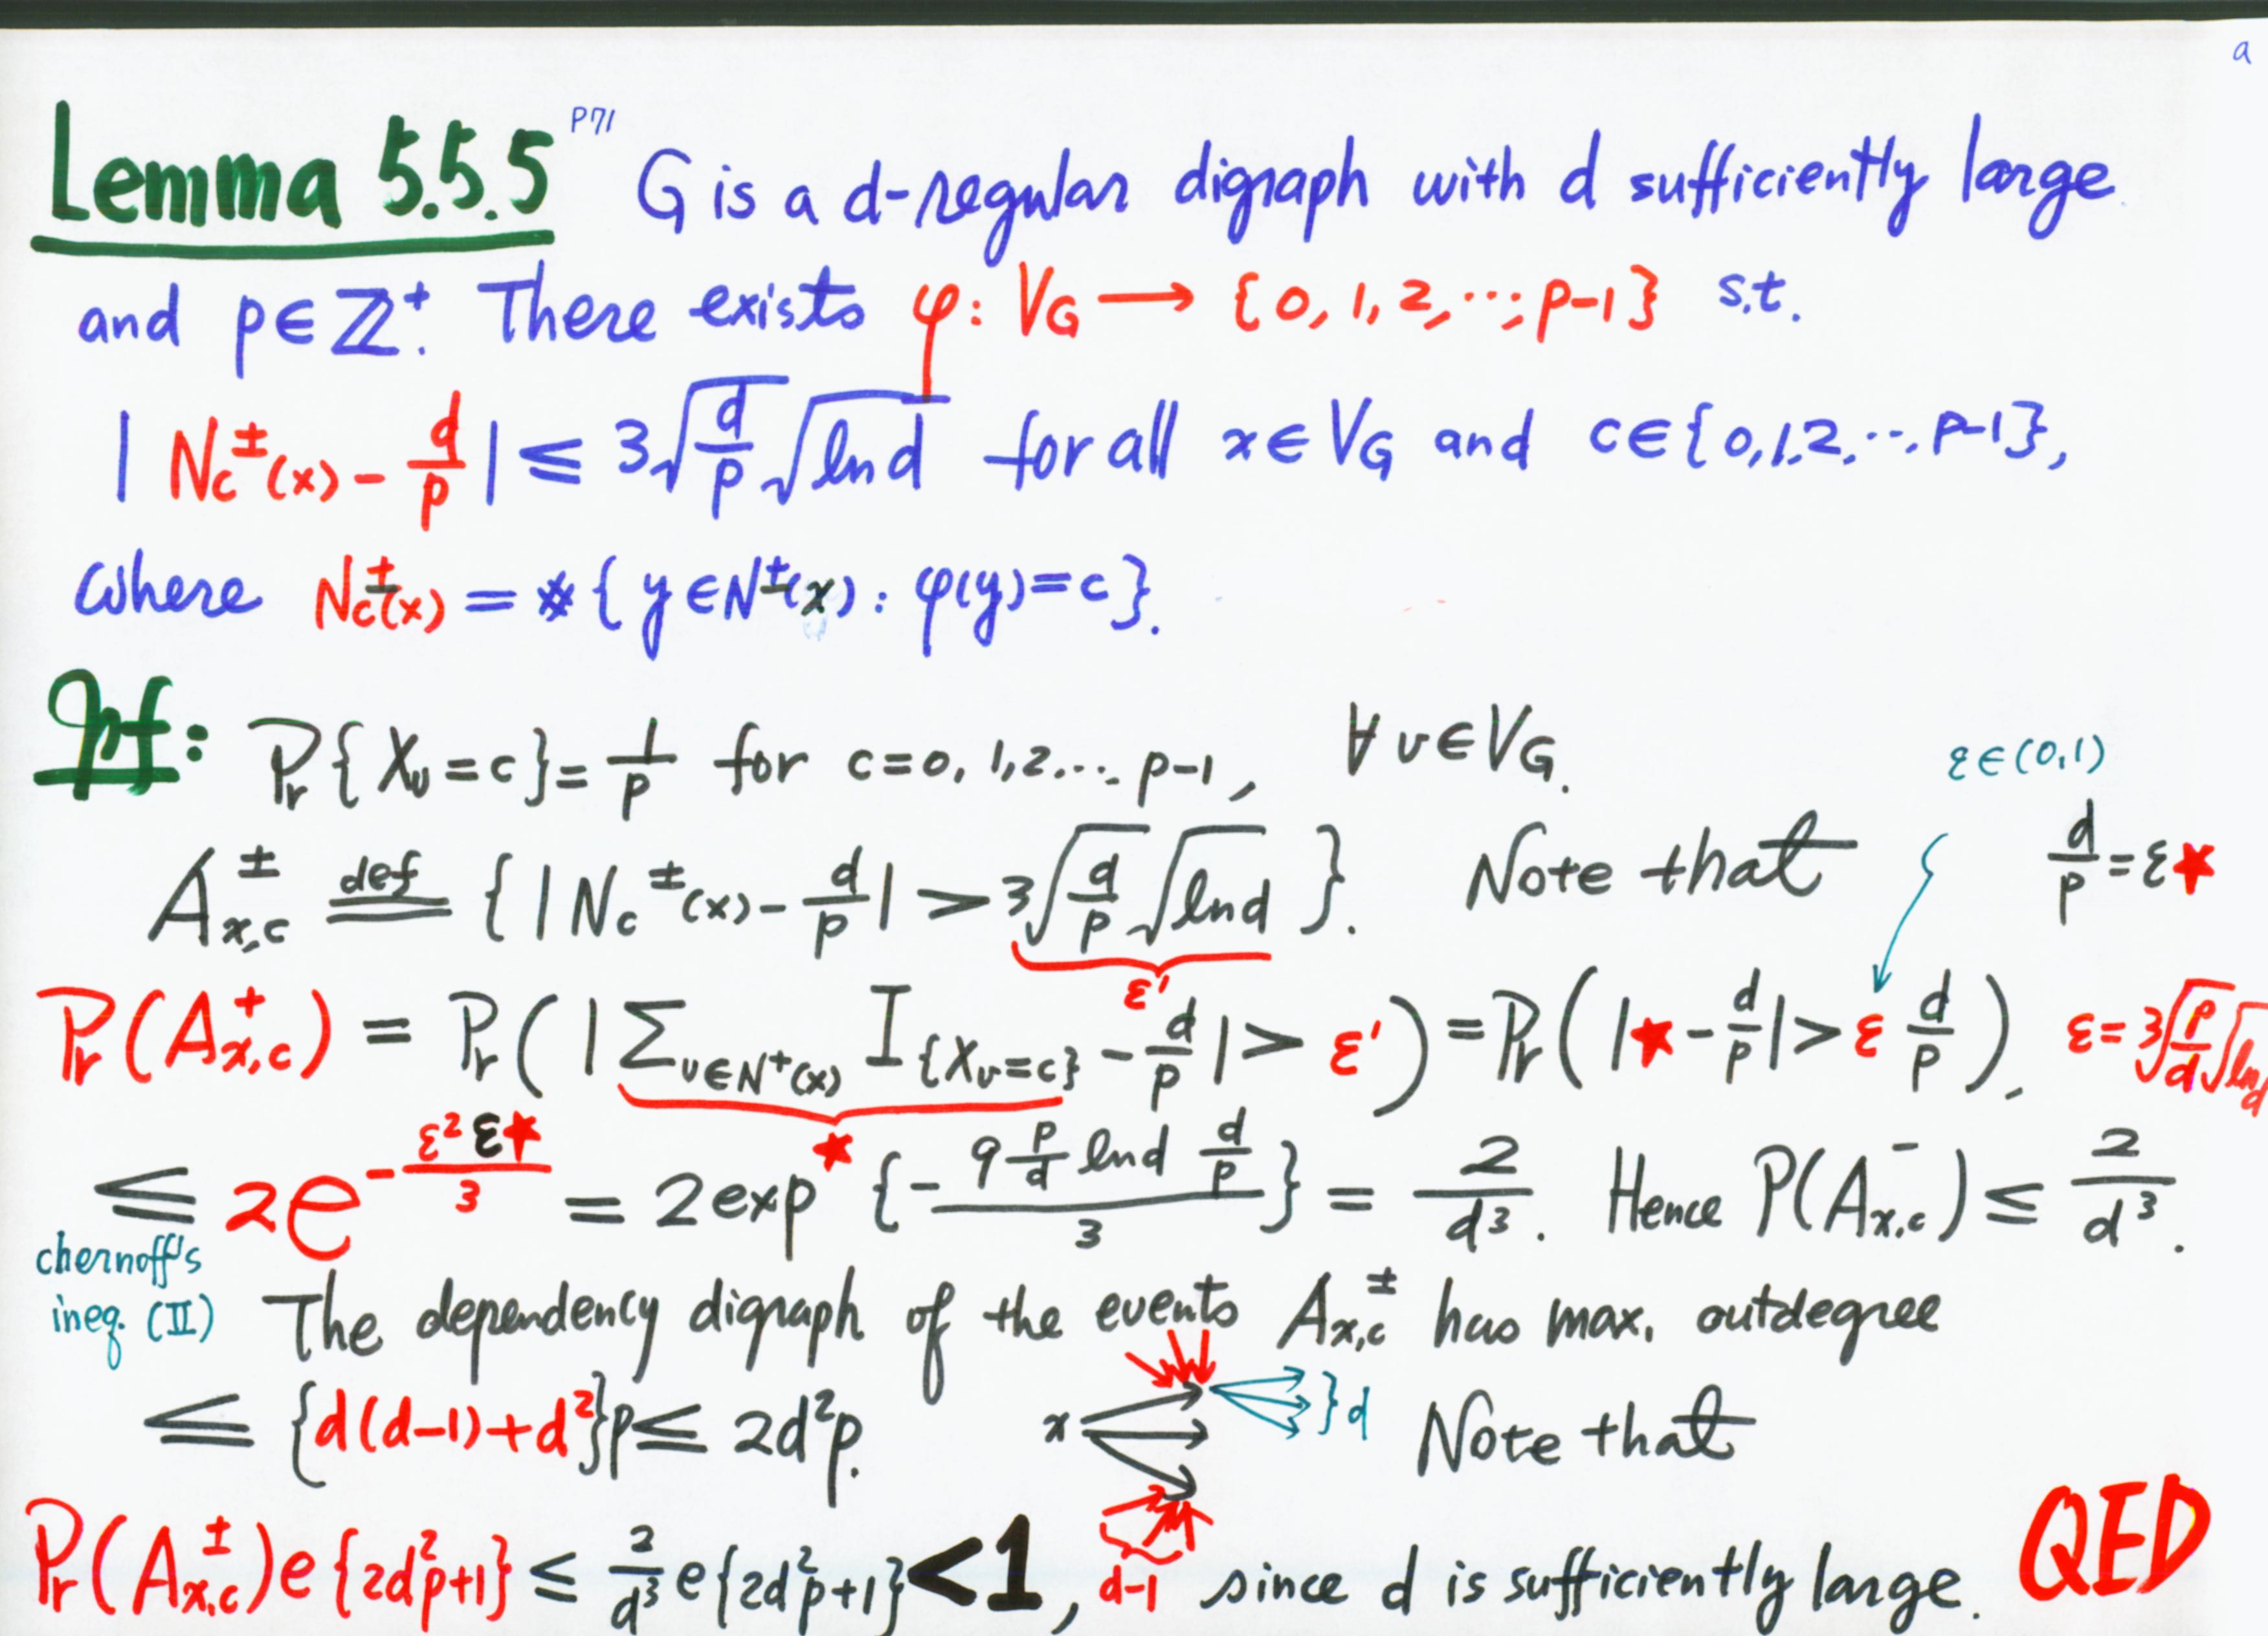 a
Lemma 5.5.5 P71 G is a d-regular digraph with d sufficiently large
and p∈ℤ⁺. There exists φ: V_G ⟶ {0, 1, 2, ..., p-1} s.t.
| N_c^±(x) - d/p | ≤ 3√(d/p) √(ln d) for all x∈V_G and c∈{0,1,2,..., p-1},
where N_c^±(x) = #{ y∈N^±(x) : φ(y)=c }.
Pf: Pr{X_v=c} = 1/p for c=0, 1,2,... p-1, ∀ v∈V_G.
ε∈(0,1)
A_{x,c}^± def { | N_c^±(x) - d/p | > 3√(d/p) √(ln d) }. Note that d/p = ε★
ε'
Pr(A_{x,c}^+) = Pr( | Σ_{v∈N⁺(x)} I_{X_v=c} - d/p | > ε' ) = Pr( |★ - d/p| > ε d/p ). ε = 3√(p/d) √(ln d)
★
≤ 2e^{-ε² ε★/3} = 2exp {- 9 p/d ln d d/p / 3} = 2/d³. Hence P(A_{x,c}^-) ≤ 2/d³.
chernoff's
ineq. (II)
The dependency digraph of the events A_{x,c}^± has max. outdegree
≤ {d(d-1)+d²}p ≤ 2d²p. x }d Note that
Pr(A_{x,c}^±)e{2d²p+1} ≤ 2/d³ e{2d²p+1} < 1, d-1 since d is sufficiently large. QED